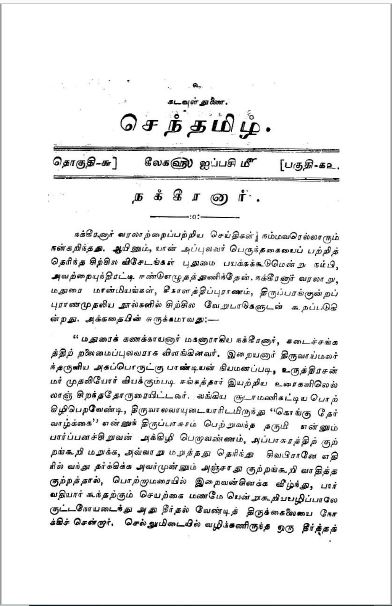 உ
கடவுள்துணை.
செந்தமிழ்.
தொகுதி-௬] ஐப்பசி மீ [பகுதி-௧௨.
நக்கீரனார்.
நக்கீரனார் வரலாற்றைப்பற்றிய செய்திகள் நம்மவரெல்லாரும்
நன்கறிந்தது. ஆயினும், யான் அப்புலவர் பெருந்தகையைப் பற்றித்
தெரிந்த சிற்சில விசேடங்கள் புதுமை பயக்கக்கூடுமென்று நம்பி,
அவற்றையுந்திரட்டி ஈண்டெழுதத்துணிந்தேன். நக்கீரனார் வரலாறு,
மதுரை மான்மியங்கள், சீகாளத்திப்புராணம், திருப்பரங்குன்றப்
புராணமுதலிய நூல்களில் சிற்சில வேறுபாடுகளுடன் கூறப்படுகி
ன்றது. அக்கதையின் சுருக்கமாவது:—
“மதுரைக் கணக்காயனார் மகனாராகிய நக்கீரனார், கடைச்சங்க
த்திற் றலைமைப்புலவராக விளங்கினவர். இறையனார் திருவாய்மலர்
ந்தருளிய அகப்பொருட்கு பாண்டியன் நியமனப்படி, உருத்திரசன்
மர் முதலியோர் வியக்கும்படி சங்கத்தார் இயற்றிய உரைகளிலெல்
லாஞ் சிறந்ததோருரையிட்டவர். வங்கிய சூடாமணிகட்டிய பொற்
கிழிபெறவேண்டி, திருவாலவாயுடையாரிடமிருந்து “கொங்கு தேர்
வாழ்க்கை” என்னுந் திருப்பாசுரம் பெற்றுவந்த தருமி என்னும்
பார்ப்பனச்சிறுவன் அக்கிழி பெறுவண்ணம், அப்பாசுரத்திற் குற்
றங்கூறி மறுக்க, அவ்வாறு மறுத்தது தெரிந்து சிவபிரானே எதிரி
ல் வந்து தர்க்கிக்க அவர்முன்னும் அஞ்சாது குற்றங்கூறி வாதித்த
குற்றத்தால், பொற்றாமரையில் இறைவன்சினக்க வீழ்ந்து, பார்
வதியார் கூந்தற்கும் செயற்கை மணமே யென்றுகூறியபழிப்பாலே
குட்டநோயடைந்து அது தீர்தல் வேண்டித் திருக்கைலையை நோ
க்கிச் சென்றார். செல்லுமிடையில் வழிக்கணிருந்த ஒரு தீர்த்தத்